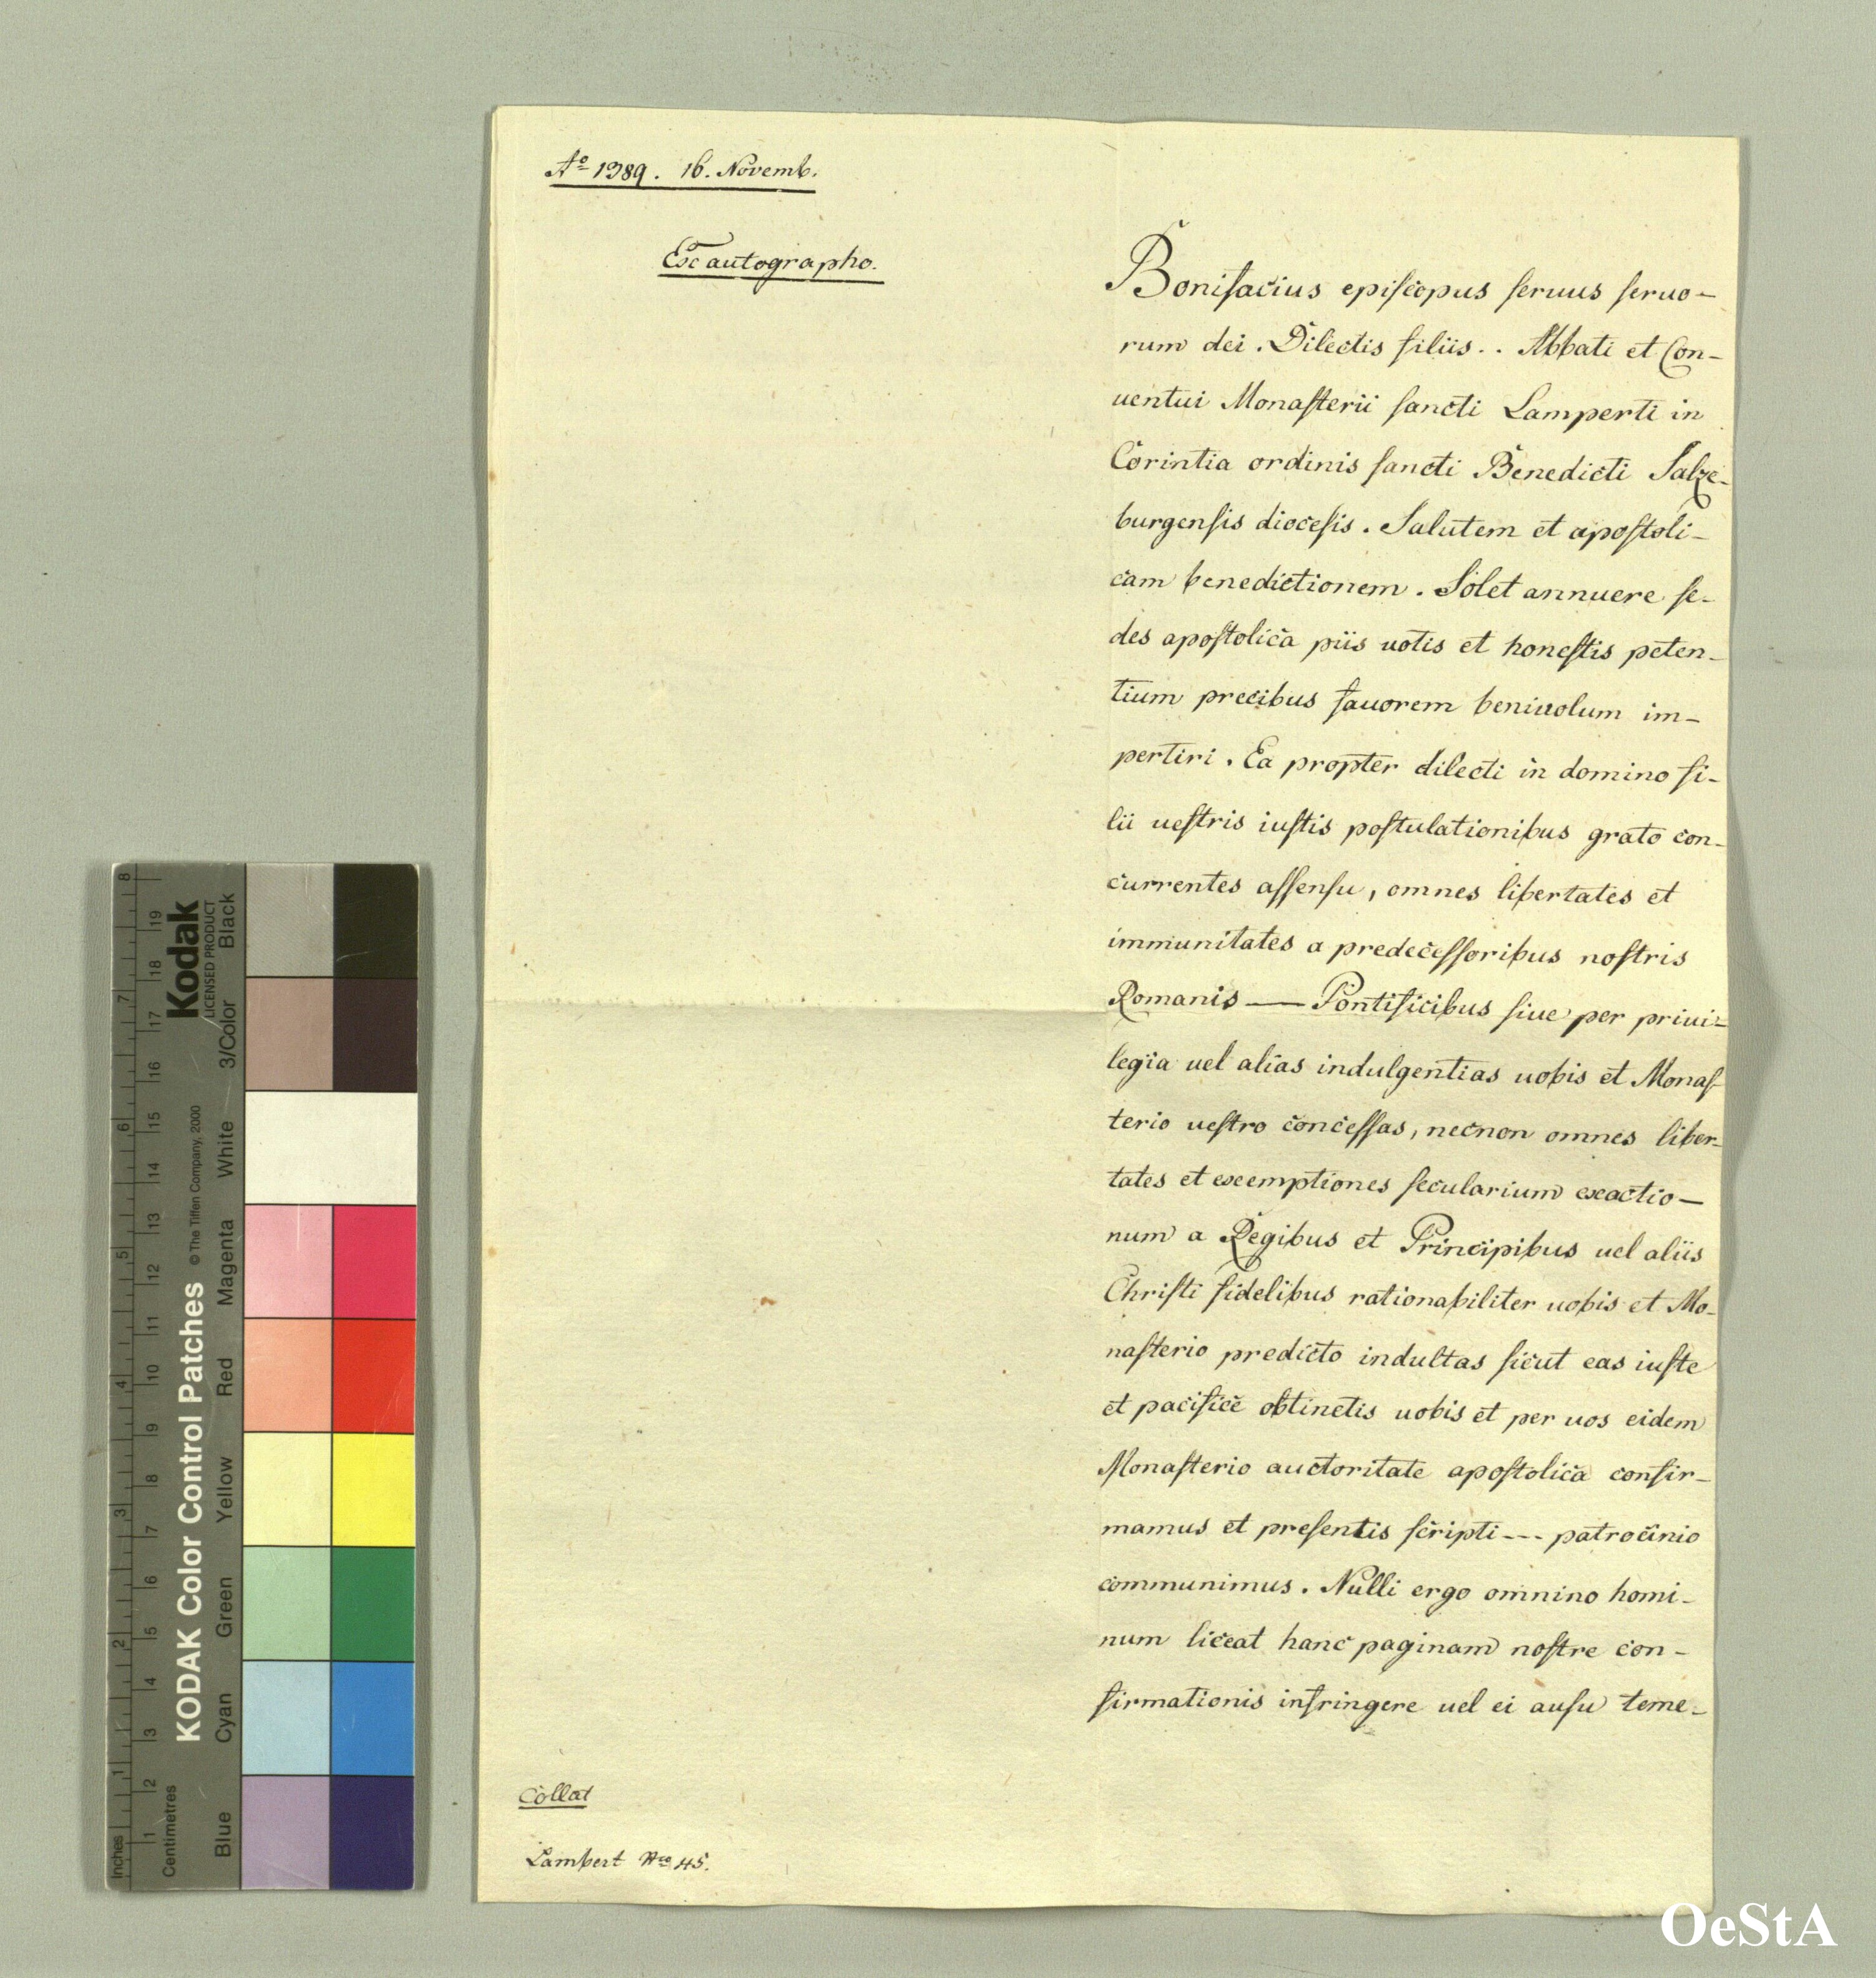 Aº 1389. 16. Novemb.
Ex autographo.
Bonifacius episcopus seruus seruo-
rum dei. Dilectis filiis.. Abbati et Con-
uentui Monasterii sancti Lamperti in
Corintia ordinis sancti Benedicti Salze-
burgensis diocesis. Salutem et apostoli-
cam benedictionem. Solet annuere se-
des apostolica piis uotis et honestis peten-
tium precibus fauorem beniuolum im-
pertiri. Ea propter dilecti in domino fi-
lii uestris iustis postulationibus grato con-
currentes assensu, omnes libertates et
immunitates a predecessoribus nostris
Romanis — Pontificibus siue per priui-
legia uel alias indulgentias uobis et Monas-
terio uestro concessas, necnon omnes liber-
tates et exemptiones secularium exactio-
num a Regibus et Principibus uel aliis
Christi fidelibus rationabiliter uobis et Mo-
nasterio predicto indultas sicut eas iuste
et pacifice obtinetis uobis et per uos eidem
Monasterio auctoritate apostolica confir-
mamus et presentis scripti --- patrocinio
communimus. Nulli ergo omnino homi-
num liceat hanc paginam nostre con-
firmationis infringere uel ei ausu teme-
Collat
Lambert Nro 45.
KODAK Color Control Patches © The Tiffen Company, 2000
Kodak
LICENSED PRODUCT
Inches 1 2 3 4 5 6 7 8
Centimetres 1 2 3 4 5 6 7 8 9 10 11 12 13 14 15 16 17 18 19
Blue Cyan Green Yellow Red Magenta White 3/Color Black
OeStA